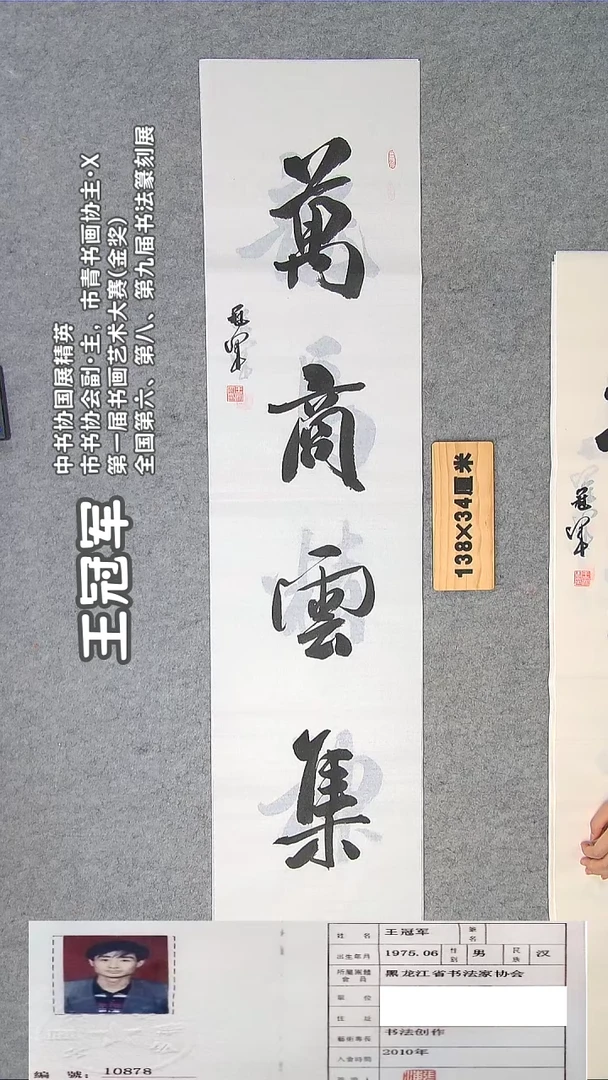 萬商雲集
冠军
138×34厘米
王冠军
中书协国展精英
市书协会副·主，市青书画协主·X
第一届书画艺术大赛(金奖)
全国第六、第八、第九届书法篆刻展
冠军
編 號: 10878
姓 名 王冠军 筆名
出生年月 1975.06 性别 男 民族 汉
所屬團體會員 黑龙江省书法家协会
單 位
住 址
藝術專長 书法创作
入會時間 2010年